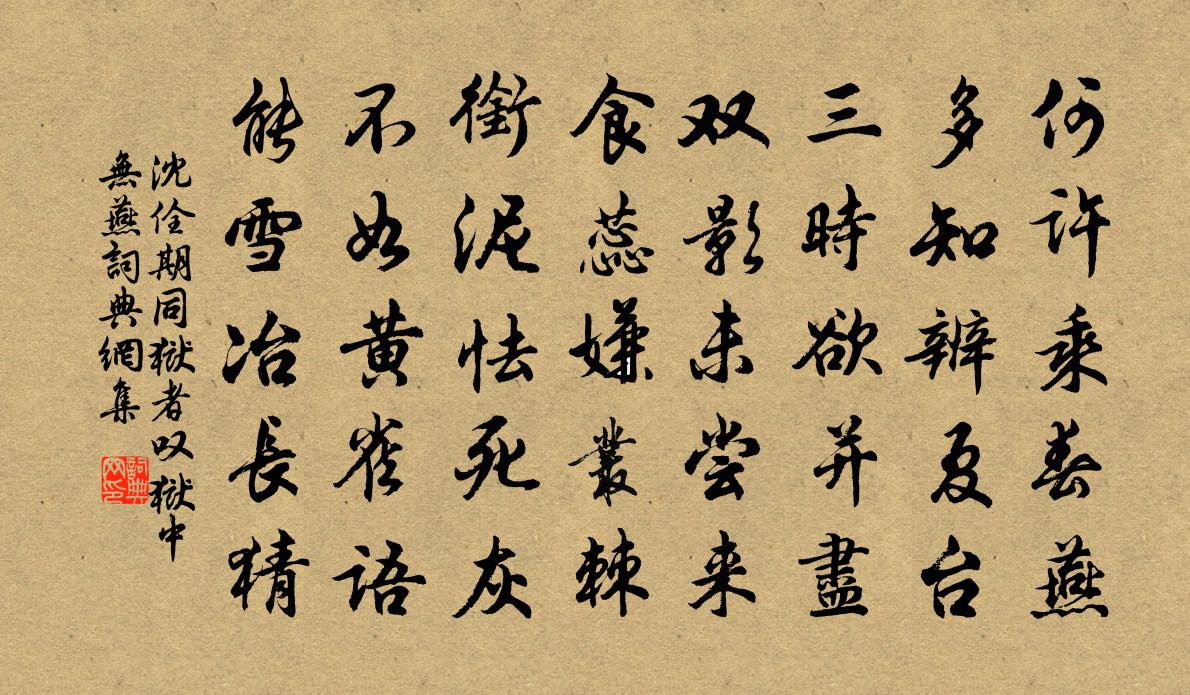 何許乘春燕
多知辨夏台
三時欲并盡
双影未尝来
食蕊嫌叢棘
銜泥怯死灰
不如黄雀語
能雪冶長猜
沈佺期同獄者叹獄中
無燕詞典網集
詞典网印